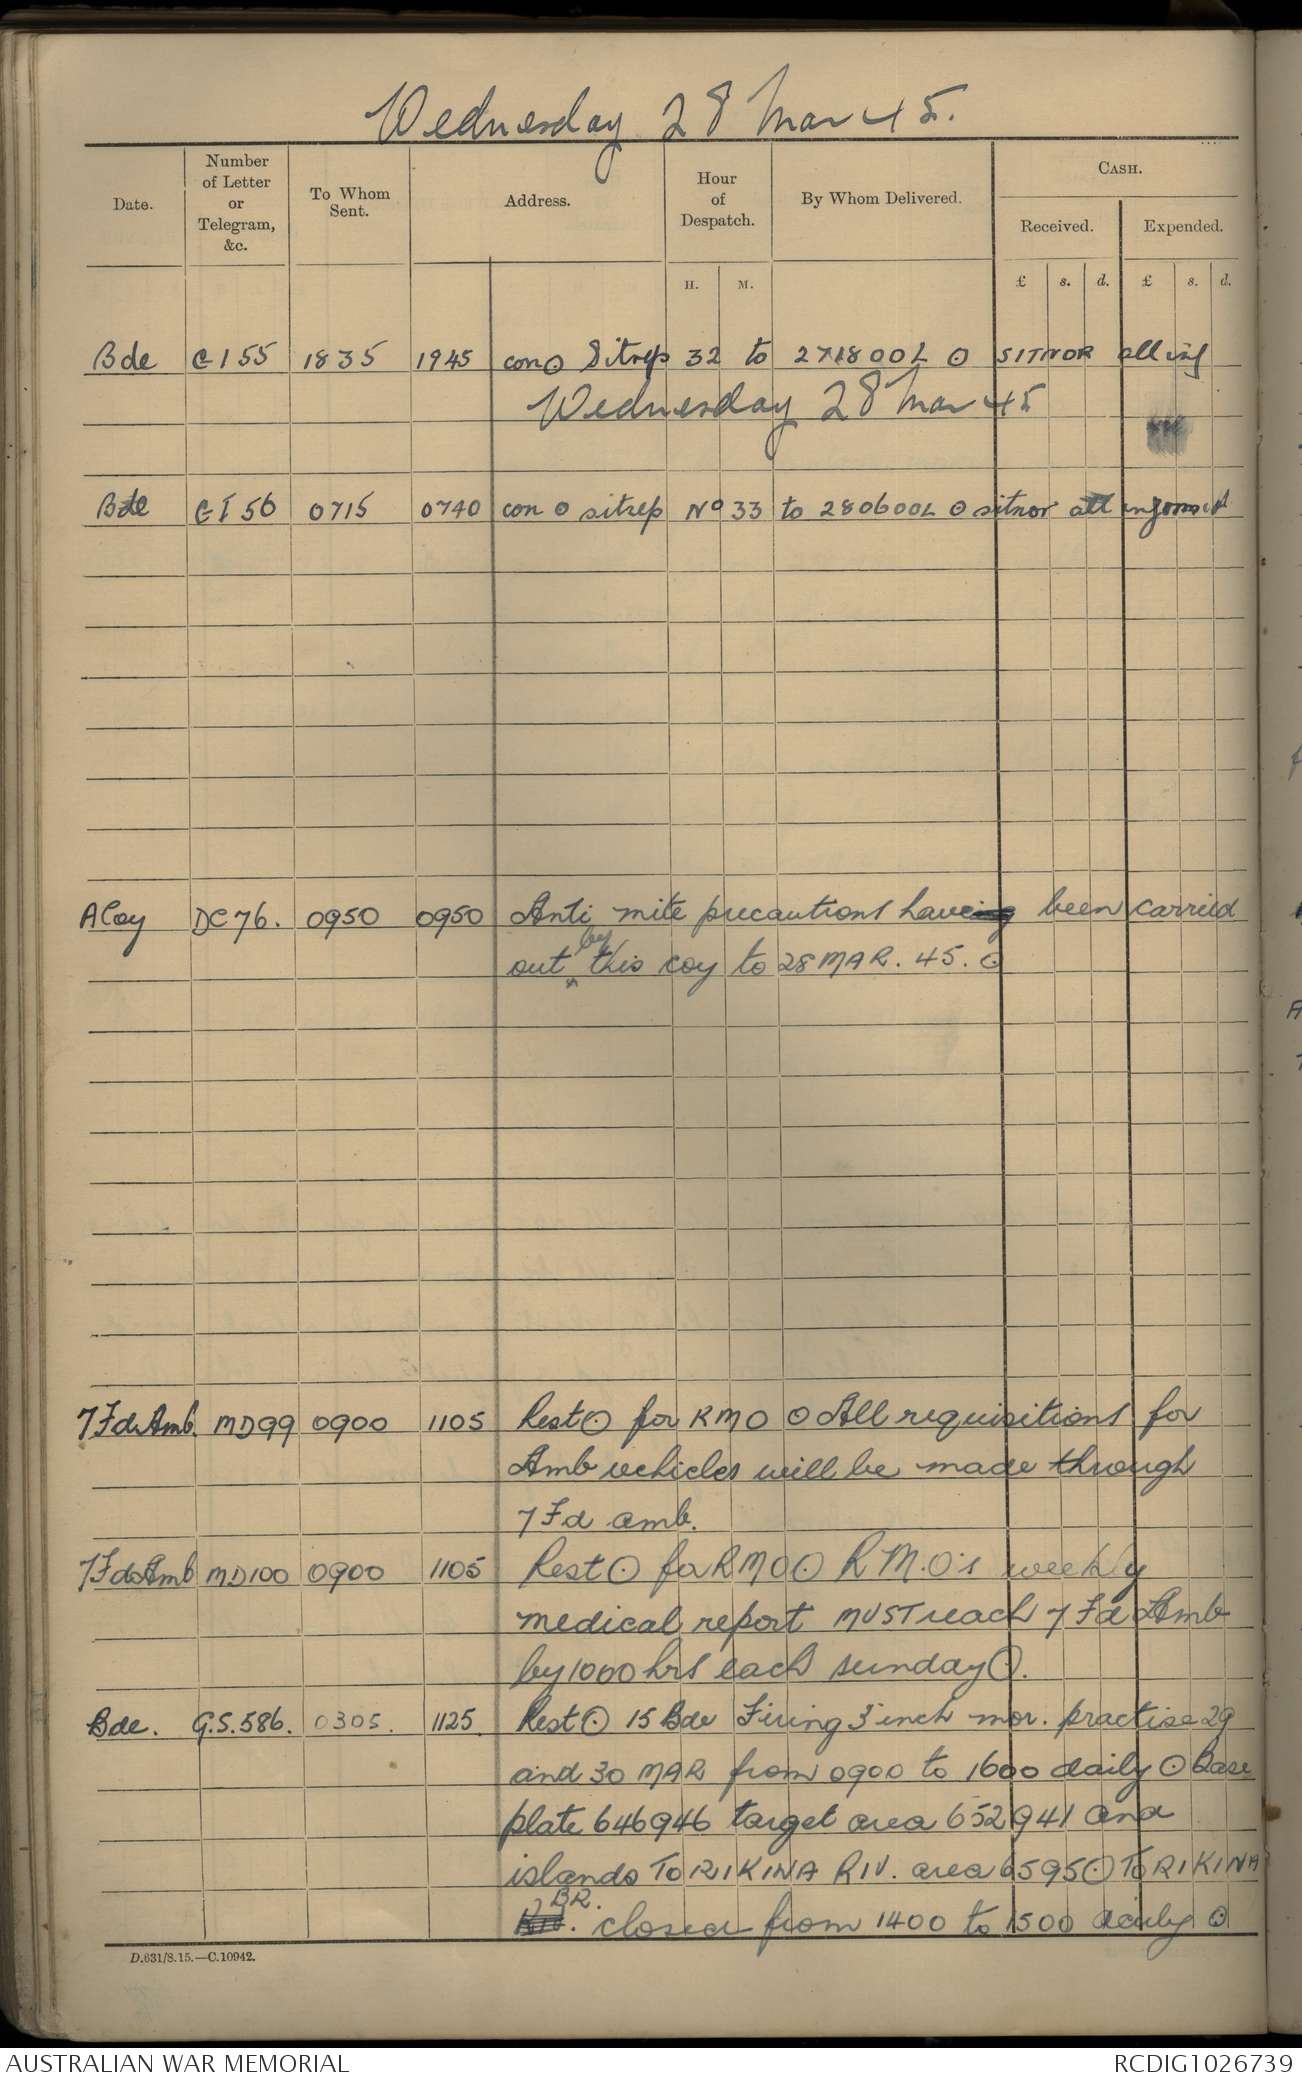 Wednesday 28 Mar 45.
Date.
Number of Letter or Telegram, &c.
To Whom Sent.
Address.
Hour of Despatch.
By Whom Delivered.
CASH.
Received.
Expended.
H. M. £ s. d. £ s. d.
Bde 155 1835 1945 con ⊙ Sitrep 32 to 271800L ⊙ SITNOR all inf
Wednesday 28 Mar 45
Bde 56 0715 0740 con ⊙ sitrep No 33 to 280600L ⊙ sitnor all
A Coy DC76. 0950 0950 Anti mite precautions have been carried
out by this coy to 28 MAR. 45. ⊙
7 Fd Amb. MD99 0900 1105 Rest ⊙ for RMO ⊙ All requisitions for
Amb vehicles will be made through
7 Fd amb.
7 Fd Amb MD100 0900 1105 Rest ⊙ for RMO ⊙ R.M.O's weekly
medical report MUST reach 7 Fd Amb
by 1000 hrs each sunday ⊙.
Bde. G.S.586. 0305. 1125. Rest ⊙ 15 Bde Firing 3 inch mor. practise 29
and 30 MAR from 0900 to 1600 daily ⊙ Base
plate 646946 target area 652941 and
islands TORIKINA RIV. area 6595 ⊙ TORIKINA
BR. closed from 1400 to 1500 daily ⊙
D.631/8.15.—C.10942.
AUSTRALIAN WAR MEMORIAL
RCDIG1026739